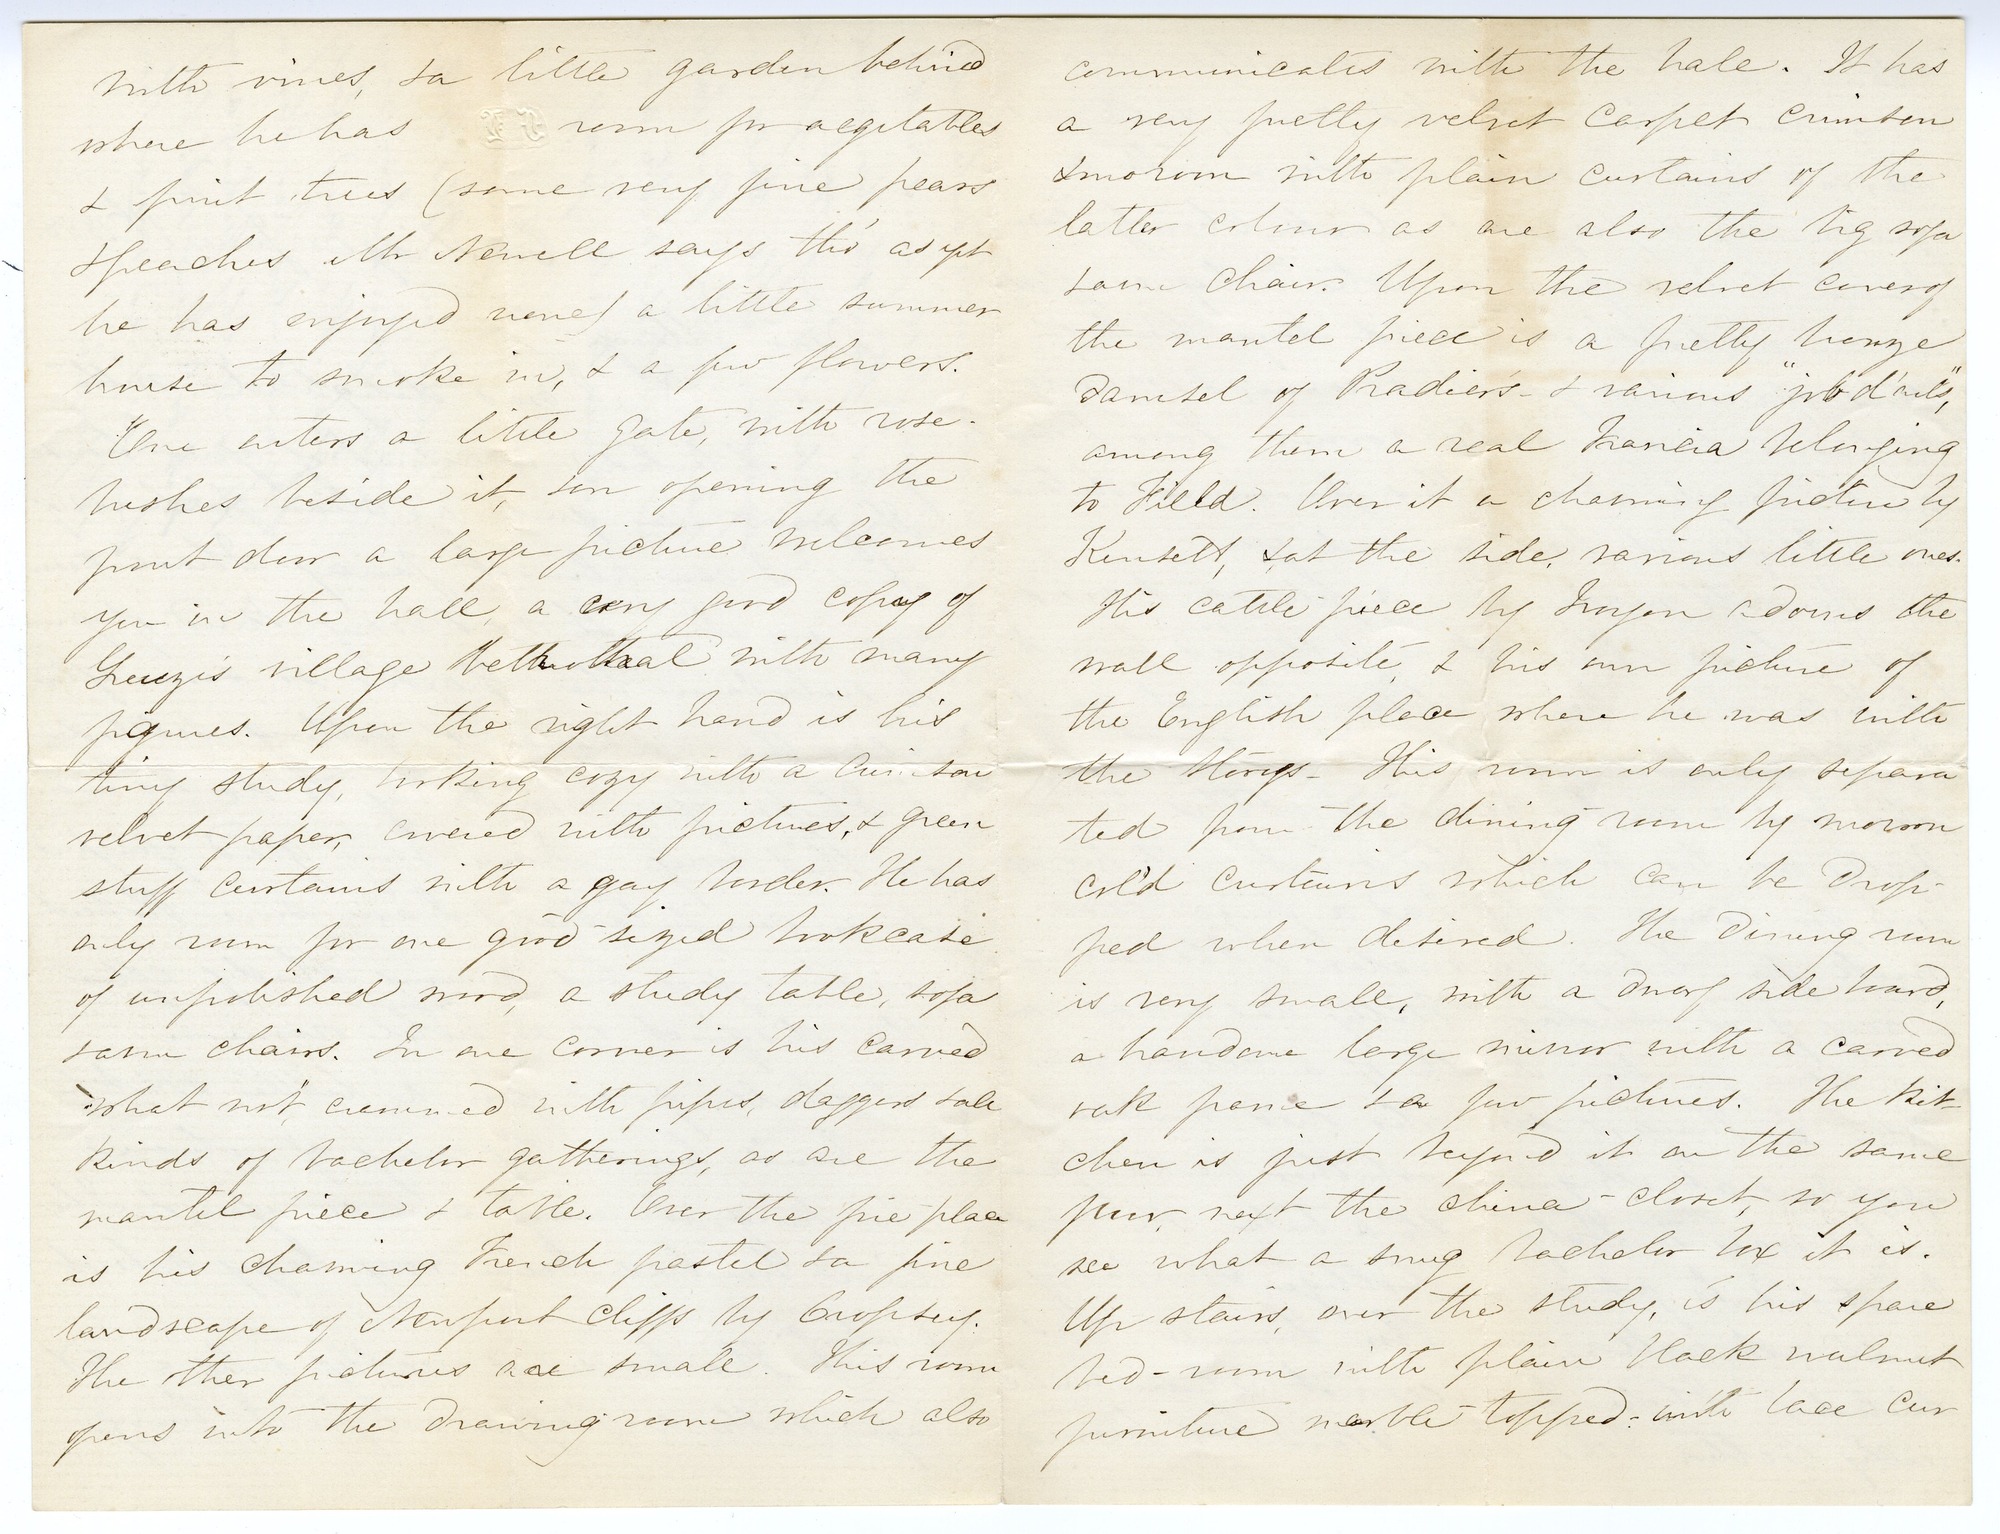 with vines, & a little garden behind
where he has room for vegetables
& fruit trees (some very fine pears
& peaches Mr Newell says tho' as yet
he has enjoyed none) a little summer
house to smoke in, & a few flowers.
One enters a little gate, with rose-
bushes beside it, & on opening the
front door a large picture welcomes
you in the hall, a very good copy of
Greuze's village betrothal with many
figures. Upon the right hand is his
tiny study, looking cozy with a crimson
velvet paper, covered with pictures, & green
stuff curtains with a gay border. He has
only room for one good sized bookcase
of unpolished wood, a study table, sofa
& arm chairs. In one corner is his carved
"what not", crammed with pipes, daggers & all
kinds of bachelor gatherings, as are the
mantel piece & table. Over the fire place
is his charming French pastel & a fine
landscape of Newport cliffs by Cropsey.
The other pictures are small. This room
opens into the drawing room which also
communicates with the hall. It has
a very pretty velvet carpet crimson
& moroon with plain curtains of the
latter colour as are also the big sofa
& arm chair. Upon the velvet cover of
the mantel piece is a pretty bronze
damsel of Pradier's - & various
among them a real Francia belonging
to Field. Over it a charming picture by
Kensett, & at the side, various little ones.
His cattle piece by Troyon adorns the
wall opposite, & his own picture of
the English place where he was with
the Storys - This room is only separa
ted from the dining room by moroon
col'd curtains which can be drop-
ped when desired. The dining room
is very small, with a dwarf side board,
a handome large mirror with a carved
oak frame & a few pictures. The kit-
chen is just beyond it on the same
floor, next the china-closet, so you
see what a snug bachelor box it is.
Up stairs, over the study, is his spare
bed-room with plain black walnut
furniture marble topped - with lace cur